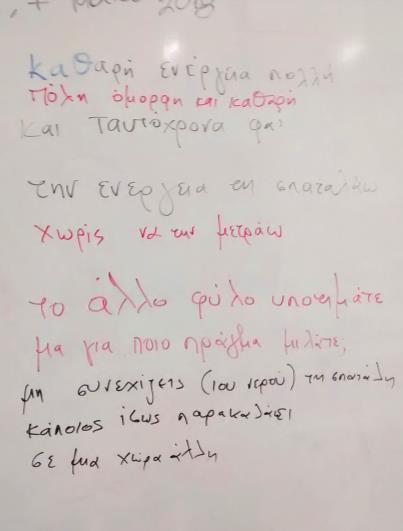 2018
καθαρή ενέργεια πολλή
πόλη όμορφη και καθαρή
και ταυτόχρονα φα
την ενεργεια τη σπαταλάω
χωρίς να την μετράω
το άλλο φύλο υποτιμάτε
μα για ποιο πράγμα μιλάτε;
μη συνεχίζεις (του νερού) τη σπατάλη
κάποιος ίσως παρακαλάει
σε μια χώρα άλλη